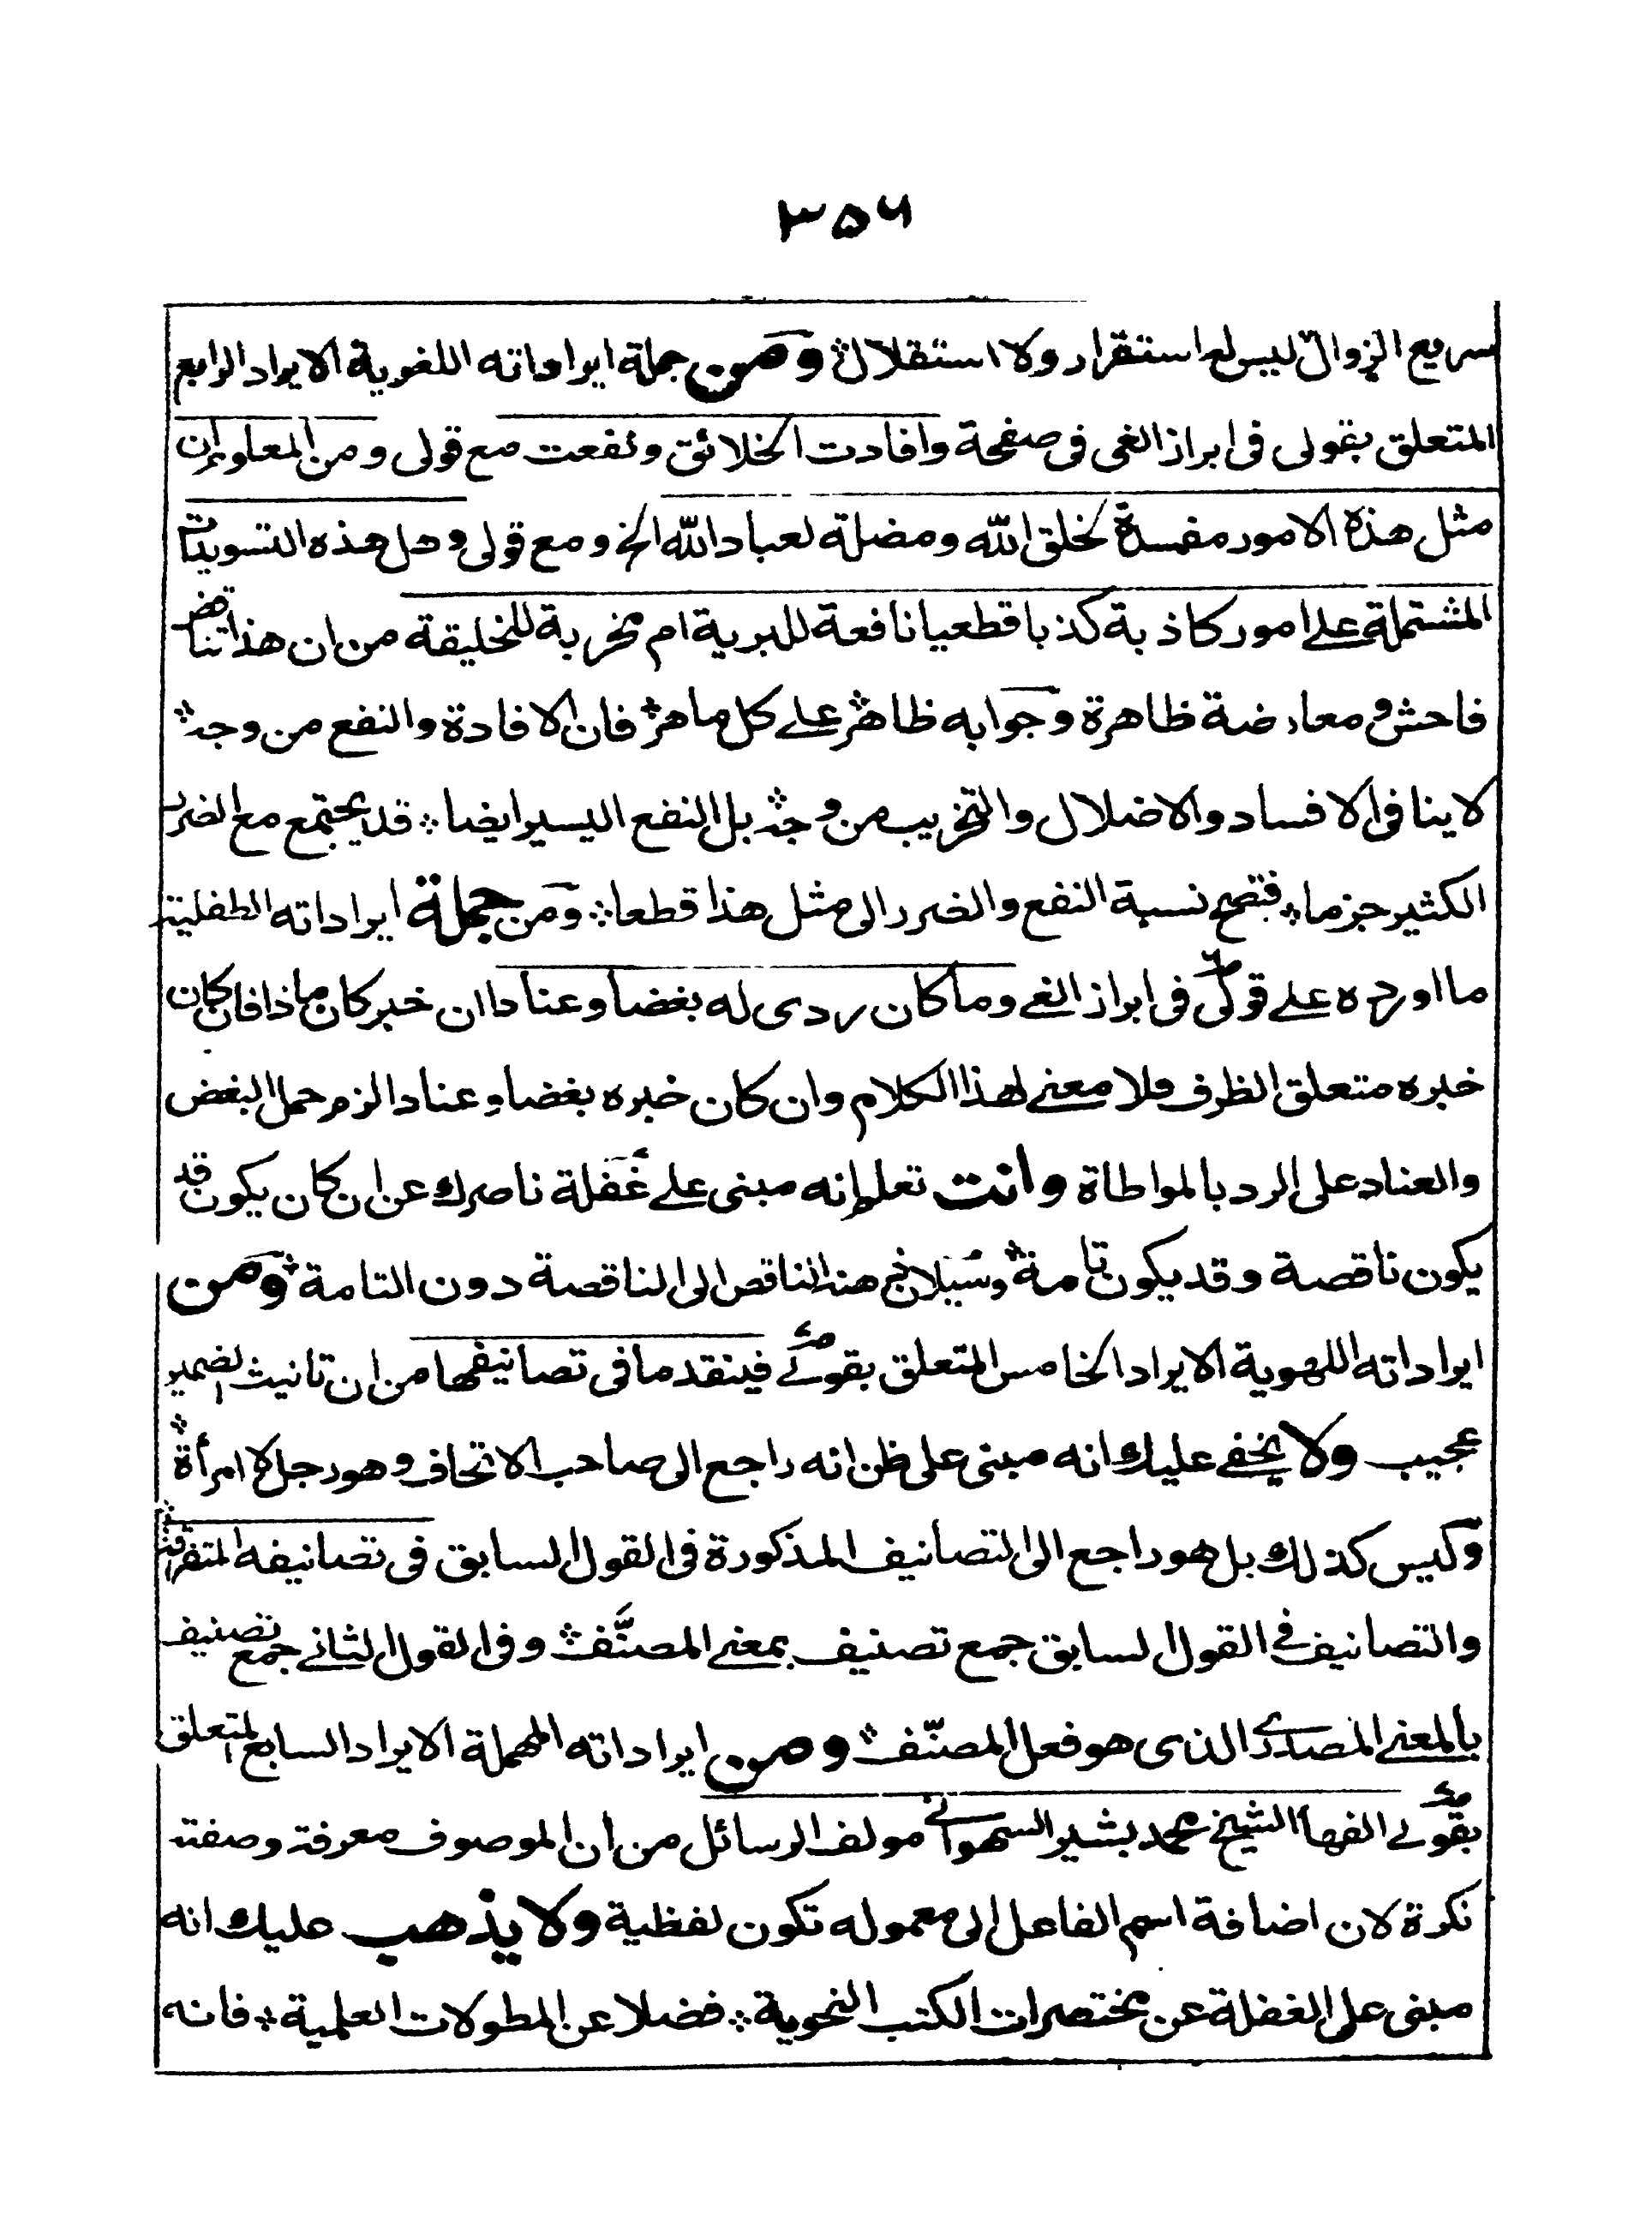 ۳۵۶
سريع الزوال ليس له استقرار ولا استقلال ومن جملة ايراداته اللغوية الايراد الرابع
المتعلق بقولى فى ابراز الغى فى صفحة وافادت الخلائق ونفعت مع قولى ومن المعلوم ان
مثل هذه الامور مفسدة لخلق الله ومضلة لعباد الله الخ ومع قولى وهل هذه التسويدات
المشتملة على امور كاذبة كذبا قطعيا نافعة للبرية ام مخربة للخليقة من ان هذا تناقض
فاحش ومعارضة ظاهرة وجوابه ظاهر على كل ماهر فان الافادة والنفع من وجه
لا ينافى الافساد والاضلال والتخريب من وجه بل النفع اليسير ايضا قد يجتمع مع الضرر
الكثير جزما فتصح نسبة النفع والضرر الى مثل هذا قطعا ومن جملة ايراداته الطفلية
ما اورده على قولى فى ابراز الغى وما كان ردى له بغضا وعنادا ان خبر كان ماذا فان كان
خبره متعلق الظرف فلا معنى لهذا الكلام وان كان خبره بغضا وعنادا لزم حمل البغض
والعناد على الرد بالمواطاة وانت تعلم انه مبنى على غفلة ناصرك عن ان كان يكون قد
يكون ناقصة وقد يكون تامة وسبيلان هذا الناقص الى الناقصة دون التامة ومن
ايراداته اللهوية الايراد الخامس المتعلق بقولى فينقد ما فى تصانيفها من ان تانيث الضمير
عجيب ولا يخفى عليك انه مبنى على ظن انه راجع الى صاحب الاتحاف وهو رجل لا امرأة
وليس كذلك بل هو راجع الى التصانيف المذكورة فى القول السابق فى تصانيفه المتفرقة
والتصانيف فى القول السابق جمع تصنيف بمعنى المصنَّف وفى القول الثانى جمع تصنيف
بالمعنى المصدرى الذى هو فعل المصنّف ومن ايراداته المهملة الايراد السابع المتعلق
بقولى الفها الشيخ محمد بشير السهسوانى مولف الرسائل من ان الموصوف معرفة وصفته
نكرة لان اضافة اسم الفاعل الى معموله تكون لفظية ولا يذهب عليك انه
مبنى على الغفلة عن مختصرات الكتب النحوية فضلا عن المطولات العلمية فانه